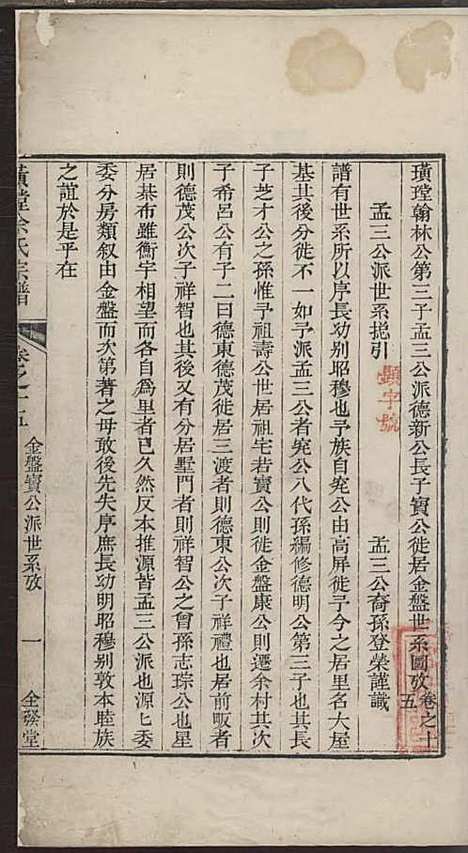 璜瑝翰林公第三子孟三公派德新公長子寳公徙居金盤世系圖攷 卷之十五
孟三公派世系捴引 孟三公裔孫登榮謹識
譜有世系所以序長幼别昭穆也予族自兖公由高屏徙予今之居里名大屋
基其後分徙不一如予派孟三公者兖公八代孫編修德明公第三子也其長
子芝才公之孫惟予祖壽公世居祖宅若寳公則徙金盤康公則遷余村其次
子希呂公有子二曰德東德茂徙居三渡者則德東公次子祥禮也居前畈者
則德茂公次子祥智也其後又有分居墅門者則祥智公之曾孫志琮公也星
居棊布雖衡宇相望而各自為里者已久然反本推源皆孟三公派也源匕委
委分房類叙由金盤而次第著之毋敢後先失序庶長幼明昭穆别敦本睦族
之誼於是乎在
璜瑝余氏宗譜 卷之十五 金盤寳公派世系攷 一 全發堂
顯字號